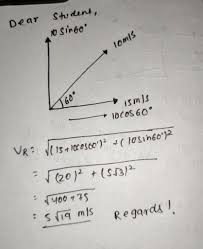 Dear Student,
10 sin60°
10m/s
60°
15m/s
10cos60°
VR = √(15+10cos60°)² + (10sin60°)²
= √(20)² + (5√3)²
= √400+75
= 5√19 m/s
Regards!